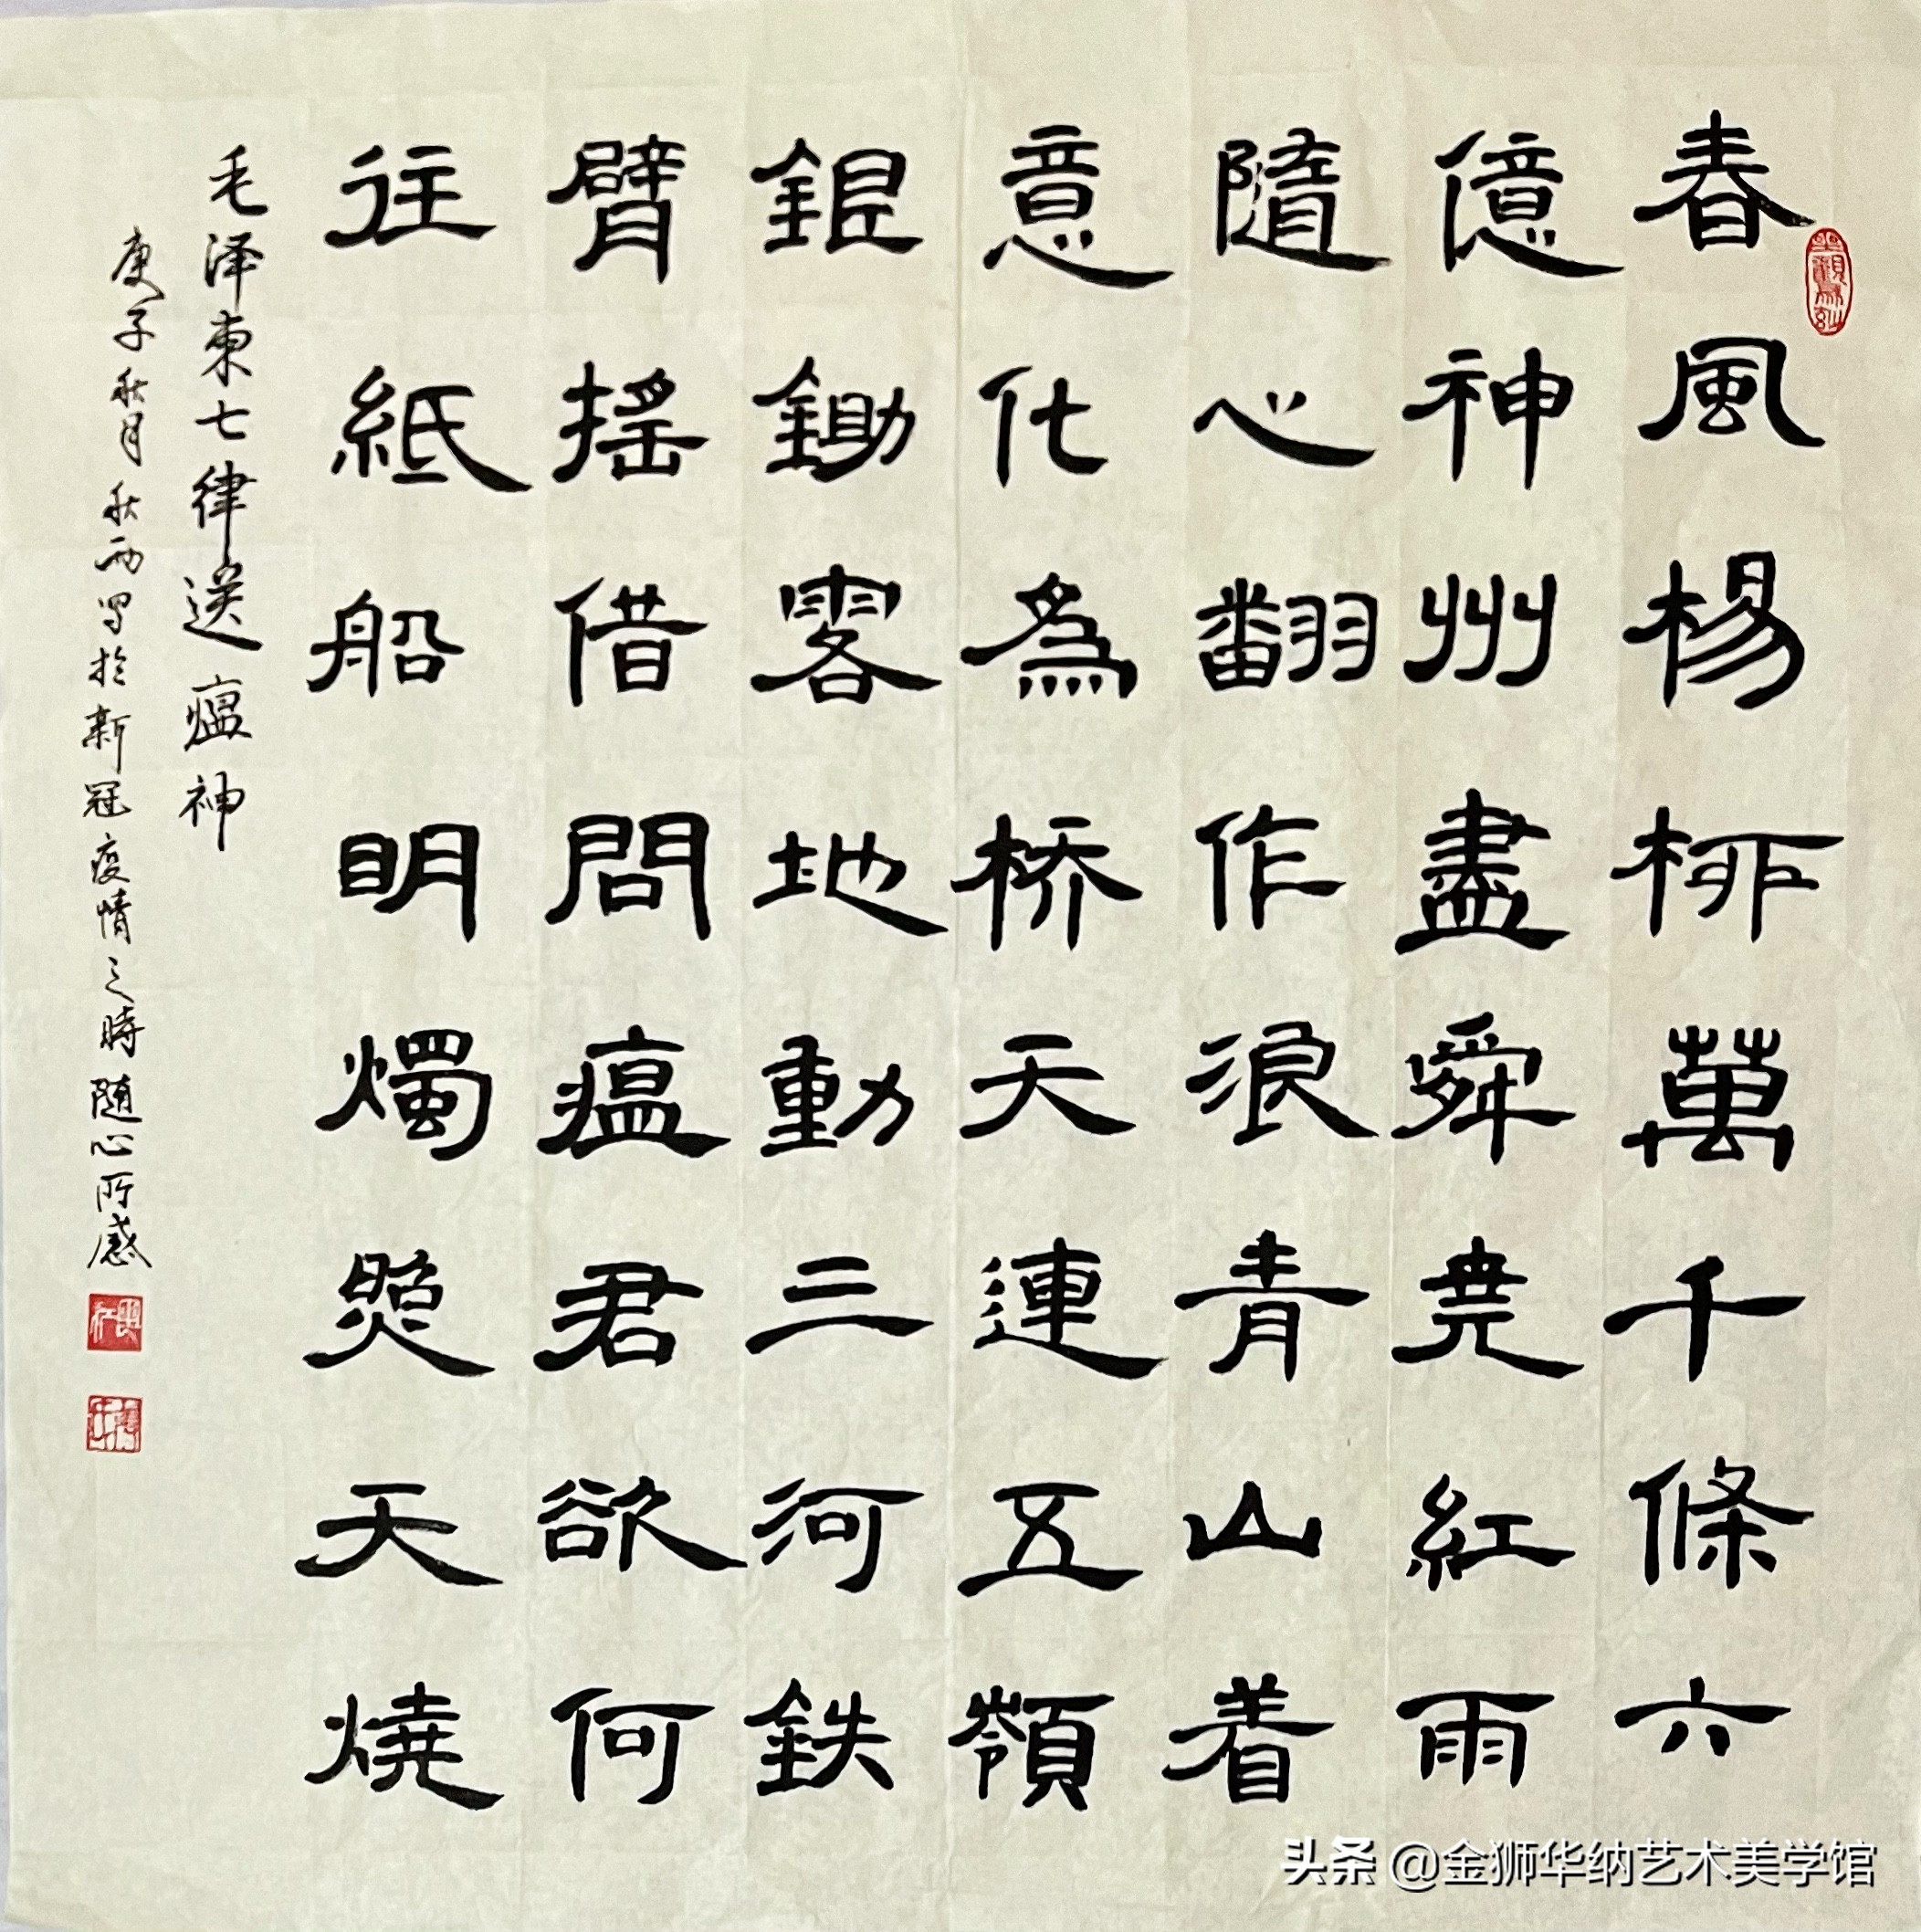 春風楊柳萬千條六
億神州盡舜尭紅雨
隨心翻作浪青山着
意化為桥天連五嶺
銀鋤落地動三河鉄
臂搖借問瘟君欲何
往紙船明燭照天燒
毛泽東七律送瘟神
庚子秋月秋雨写於新冠疫情之時随心所感
头条 @金狮华纳艺术美学馆